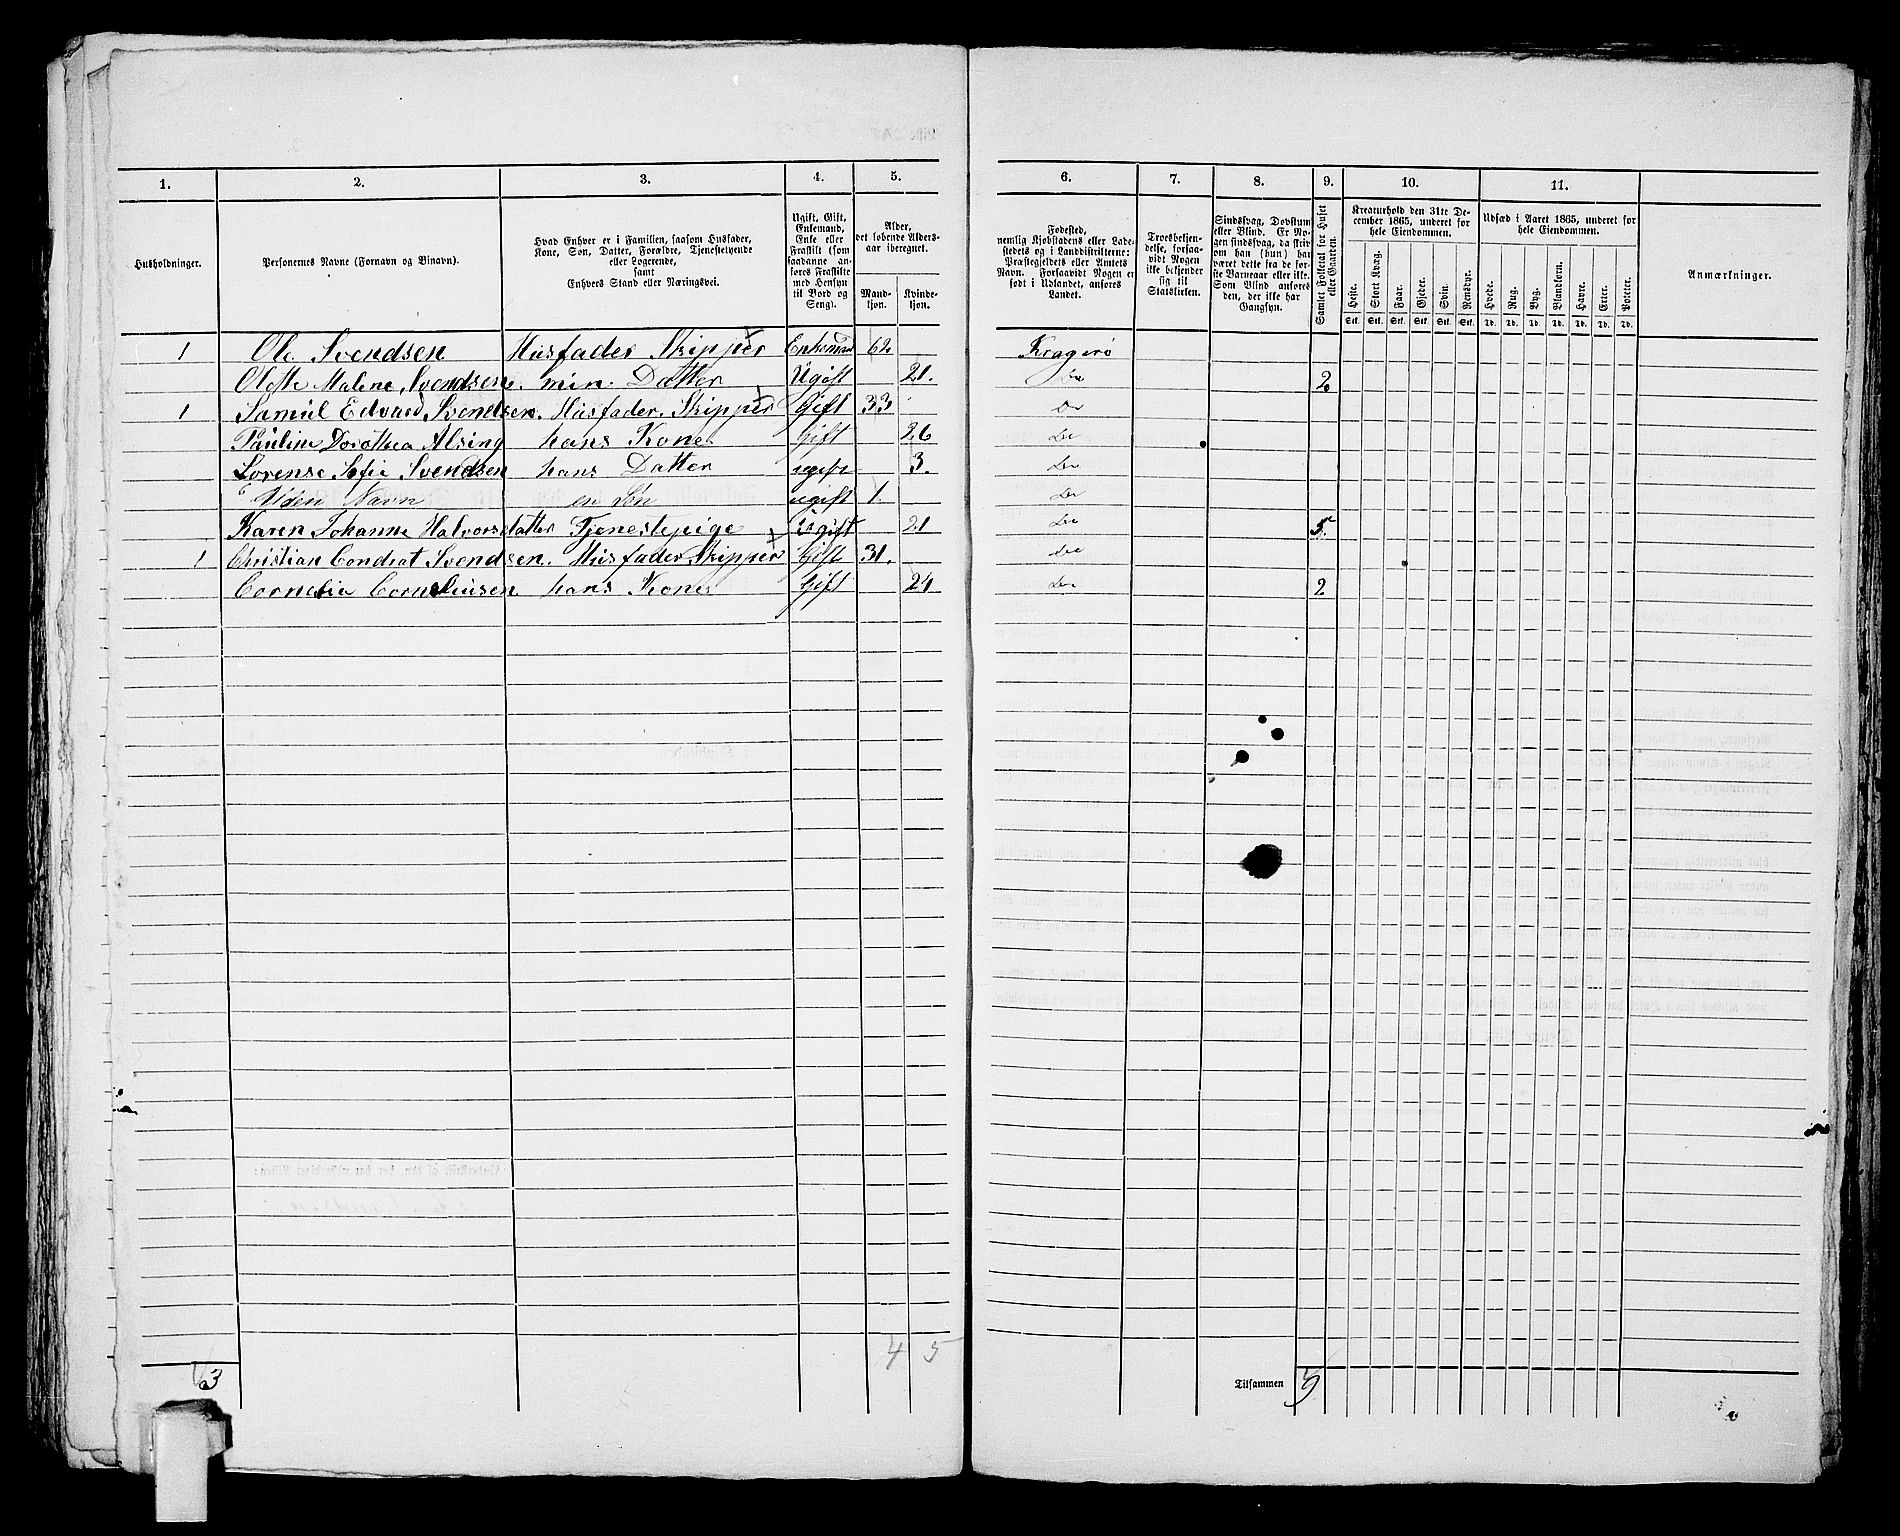 1. 2. 3. 4. 5. 6. 7. 8. 9. 10. 11.
Husholdninger.
Personernes Navne (Fornavn og Binavn).
Hvad Enhver er i Familien, saasom Husfader,
Kone, Søn, Datter, Forældre, Tjenestetyende
eller Logerende,
samt
Enhvers Stand eller Næringsvei.
Ugift, Gift,
Enkemand,
Enke eller
Fraskilt (som
saadanne an-
føres Fraskilte
med Hensyn
til Bord og
Seng).
Alder,
det løbende Alders-
aar iberegnet.
Mand-
kjøn.
Kvinde-
kjøn.
Fødested,
nemlig Kjøbstadens eller Lade-
stedets og i Landdistrikterne:
Præstegjeldets eller Amtets
Navn. Forsaavidt Nogen er
født i Udlandet, anføres
Landet.
Troesbekjen-
delse, forsaa-
vidt Nogen
ikke bekjender
sig til
Statskirken.
Sindssvag, Døvstum
eller Blind. Er No-
gen sindssvag, da skriv
om han (hun) har
været dette fra de før-
ste Barneaar eller ikke.
Som Blind anføres
den, der ikke har
Gangsyn.
Samlet Folketal for Huset
eller Gaarden.
Kreaturhold den 31te De-
cember 1865, underet for
hele Eiendommen.
Heste. Stort Kvæg. Faar. Gjeder. Svin. Rensdyr.
Stk. Stk. Stk. Stk. Stk. Stk.
Udsæd i Aaret 1865, underet for
hele Eiendommen.
Hvede. Rug. Byg. Blandkorn. Havre. Erter. Poteter.
Td. Td. Td. Td. Td. Td. Td.
Anmærkninger.
1 Ole Svendsen Husfader Skipper Enkemand 62 Kragerø
Olette Malene Svendsen. min. Datter Ugift 21. Do 2
1 Samúel Edvard Svendsen. Husfader. Skipper Gift 33 Do
Pauline Dorothea Alsing hans Kone Gift 26 Do
Lovense Sofie Svendsen hans Datter ugift 3. Do
Uden Navn en Søn ugift 1. Do
Karen Johanne Halvorsdatter Tjenestepige Ugift 21 Do 5.
1 Christian Condrat Svendsen. Husfader Skipper Gift 31. Do
Cornelia Corneliusen hans Kone Gift 24 Do 2
3 4 5 Tilsammen 9